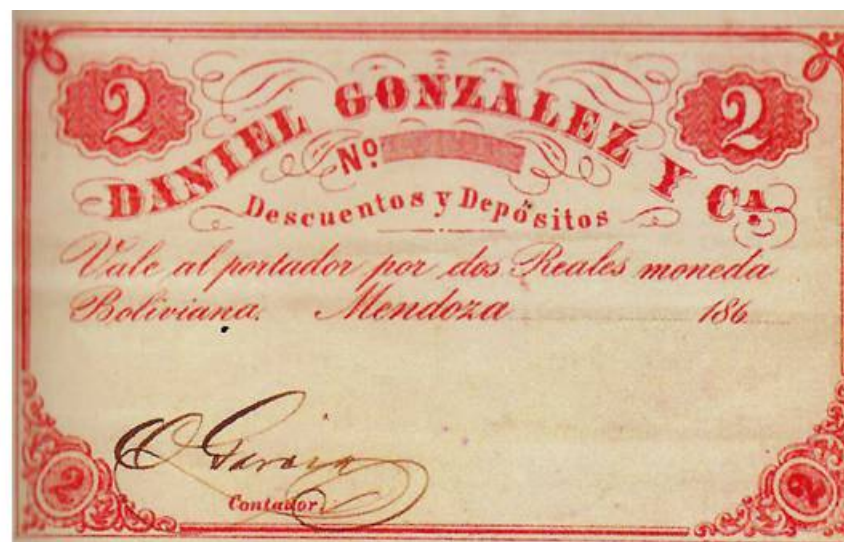 2 2
DANIEL GONZALEZ Y CA.
Nº
Descuentos y Depósitos
Vale al portador por dos Reales moneda
Boliviana. Mendoza 186
Garcia
Contador
2 2